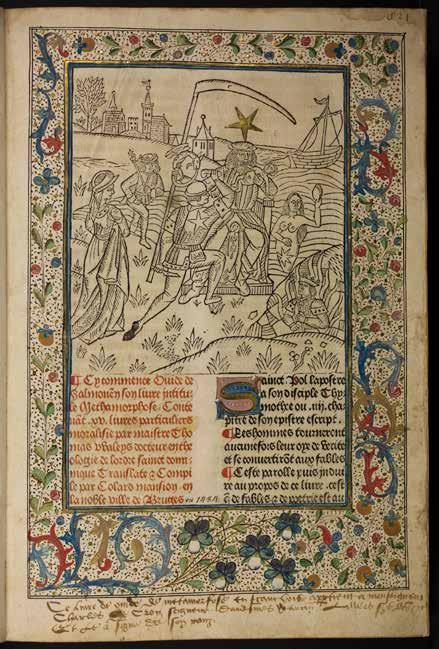 ¶ Cy commence Ouide de
Salmonen son liure intitu
le Methamorphose. Conte
nāt .xv. liures particuliers
moralisie par maistre Tho
mas waleys docteur en the
ologie de lordre sainct domi
nique Translate & Compi
le par Colard mansion en
la noble ville de Bruges en 1484
Sainct Pol lapostre
a son disciple Thy
mothee ou .iiij. cha
pitre de son epistre escript.
¶ Les hommes tourneront
aucunefois leur oye de verite
et se conuertirōt aux fables
¶ Ceste parolle puis indui
re au propos de ce liure .cest
de fables & de poetrie est au
Ce liure de metamorfose
Charles de Croy